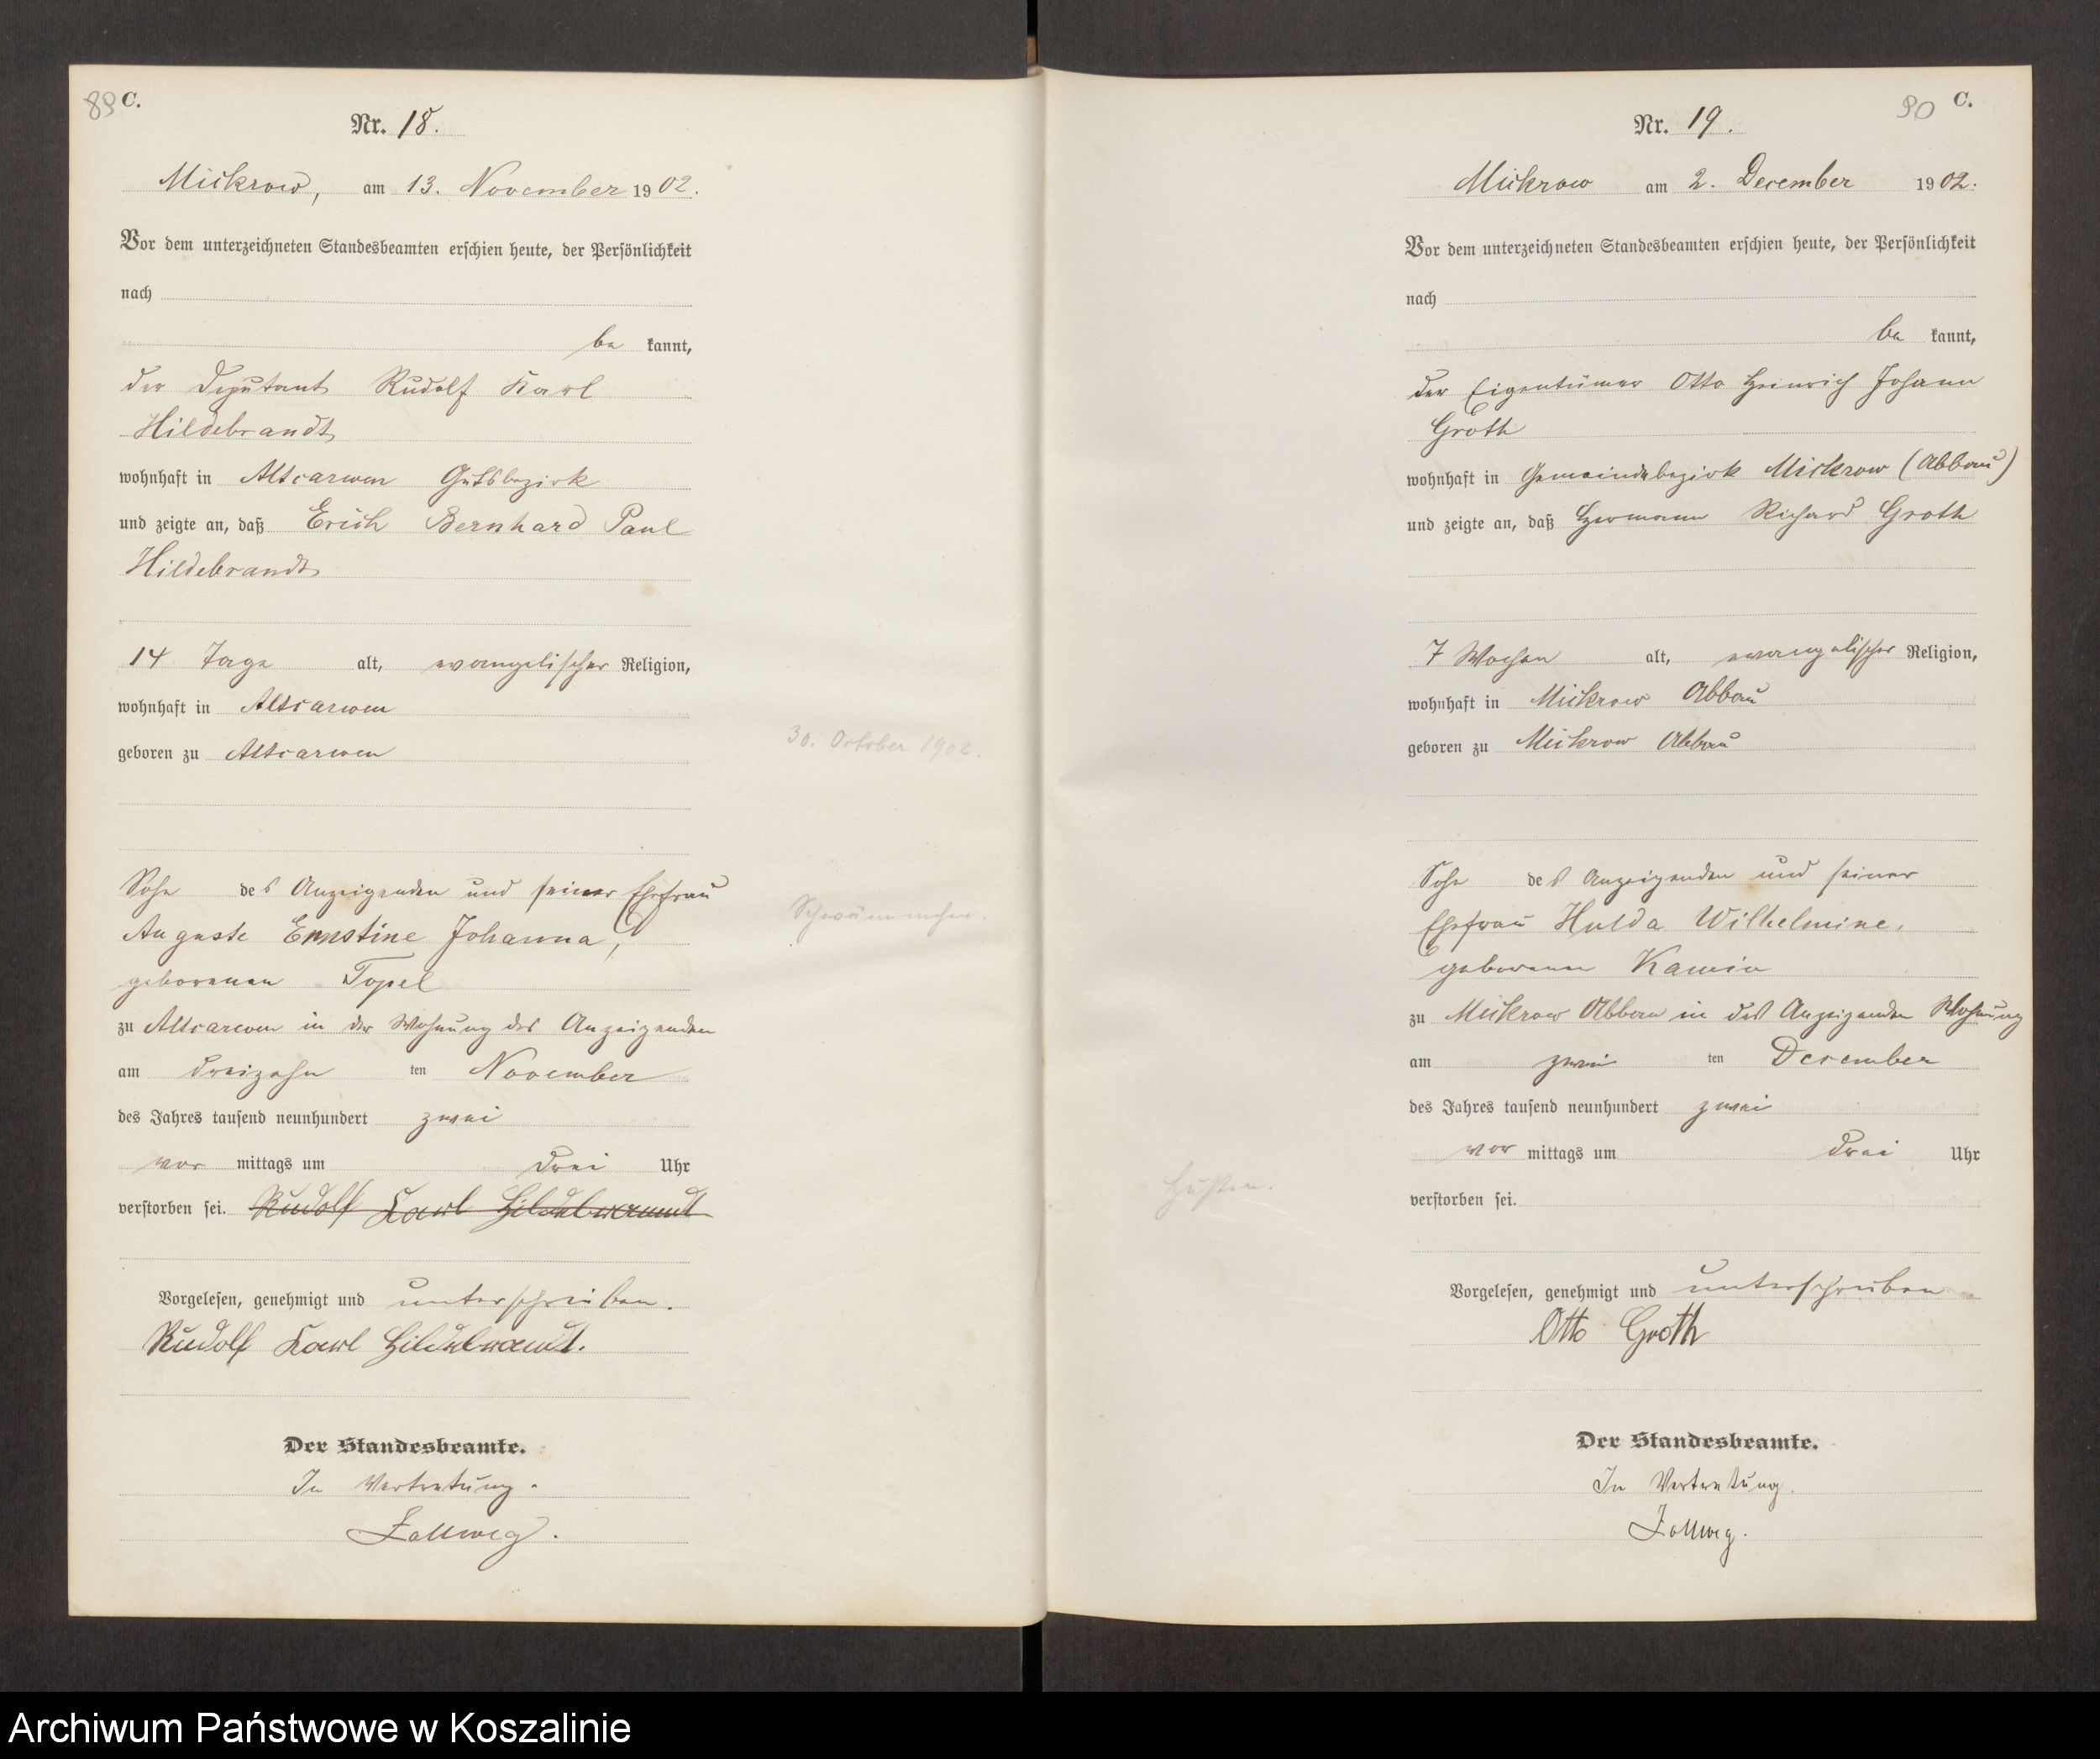 89 C.
Nr. 18.
Mickrow, am 13. November 1902.
Vor dem unterzeichneten Standesbeamten erschien heute, der Persönlichkeit
nach
be kannt,
der Deputant Rudolf Karl
Hildebrandt
wohnhaft in Altcarwen Gutsbezirk
und zeigte an, daß Erich Bernhard Paul
Hildebrandt
14 Tage alt, evangelischer Religion,
wohnhaft in Altcarwen
geboren zu Altcarwen
30. October 1902.
Sohn des Anzeigenden und seiner Ehefrau
Auguste Ernstine Johanna,
geborenen Topel
zu Altcarwen in der Wohnung des Anzeigenden
am dreizehn ten November
des Jahres tausend neunhundert zwei
vor mittags um drei Uhr
verstorben sei. Rudolf Karl Hildebrandt
Vorgelesen, genehmigt und unterschrieben.
Rudolf Karl Hildebrandt.
Der Standesbeamte.
In Vertretung.
Zollweg.
90 C.
Nr. 19.
Mickrow am 2. December 1902.
Vor dem unterzeichneten Standesbeamten erschien heute, der Persönlichkeit
nach
be kannt,
der Eigentümer Otto Heinrich Johann
Groth
wohnhaft in Gemeindebezirk Mickrow (Abbau)
und zeigte an, daß Hermann Richard Groth
7 Wochen alt, evangelischer Religion,
wohnhaft in Mickrow Abbau
geboren zu Mickrow Abbau
Sohn des Anzeigenden und seiner
Ehefrau Hulda Wilhelmine,
geborenen Kamin
zu Mickrow Abbau in des Anzeigenden Wohnung
am zwei ten December
des Jahres tausend neunhundert zwei
vor mittags um drei Uhr
Husten.
verstorben sei.
Vorgelesen, genehmigt und unterschrieben
Otto Groth
Der Standesbeamte.
In Vertretung.
Zollweg.
Archiwum Państwowe w Koszalinie